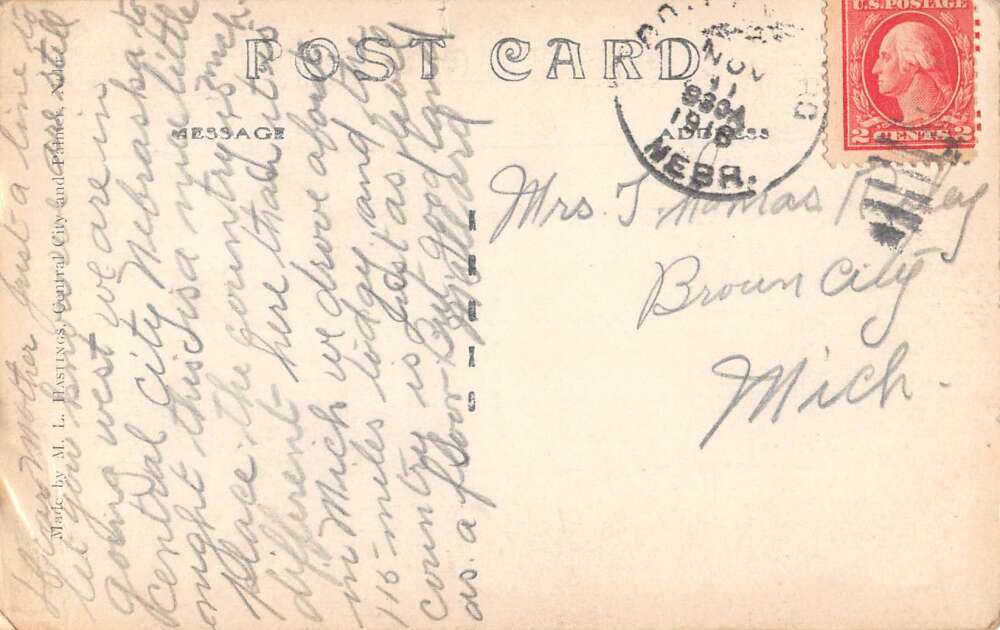 POST CARD
MESSAGE
ADDRESS
U.S. POSTAGE
2 CENTS 2
NOV
11
830A
1918
NEBR.
Mrs. Thomas
Brown City
Mich.
Made by M. L. Hastings, Central City and Palmer, Nebr.
Dear mother Just a line to
let you know we are still
going west we are in
Central City Nebraska to
night this is a nice little
place the country is much
different here than it is
in Mich we drove about
115 miles today and the
country is just as level
as a floor But good land